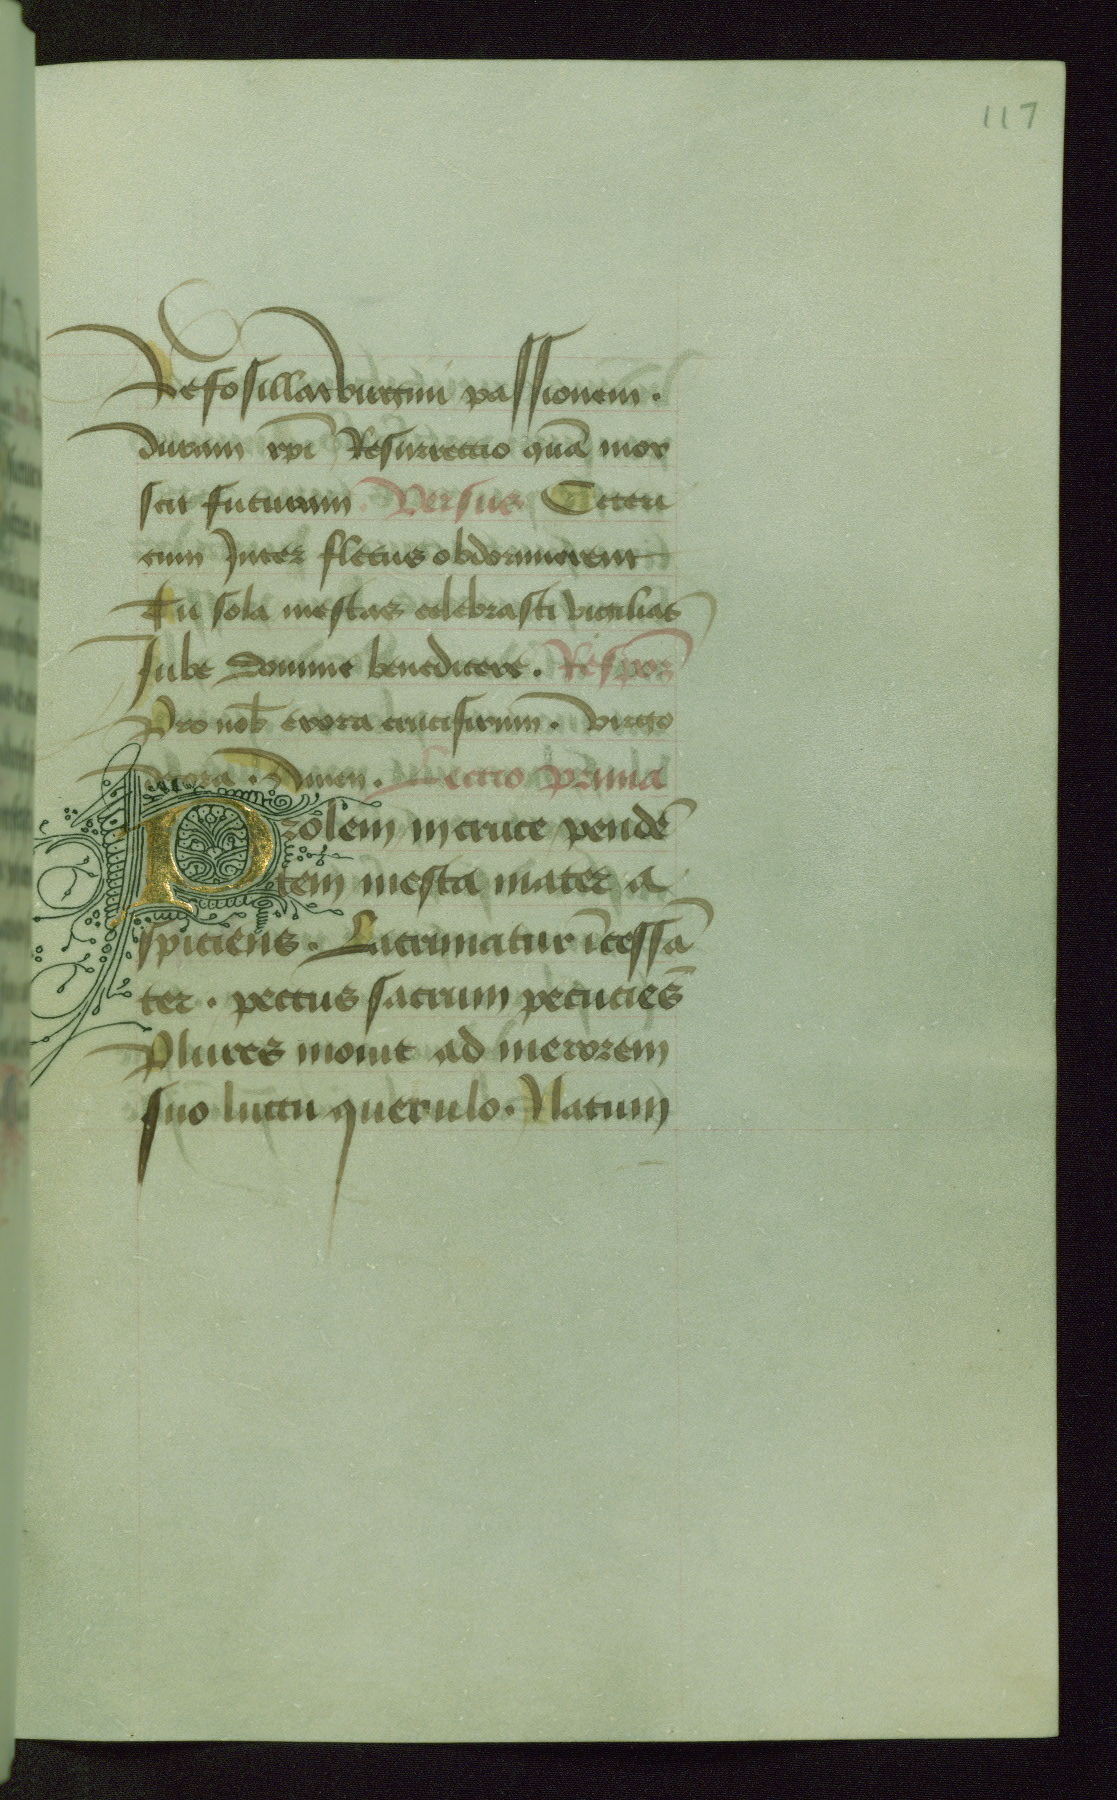 117
Refosillat virgini passionem.
duram xpi Resurrectio quā mox
scit futuram Versus Ceteri
cum Inter fletus obdormirent
Tu sola mestas celebrasti vigilias
Jube Domine benedicere. Respons
Pro nob exora crucifixum. Virgo
decora. Amen. Lectio prima
Prolem in cruce pendē
tem mesta mater a
spiciens. Lacrimatur īcessā
ter. pectus sacrum percuciēs
Plures mouit ad merorem
suo luctu querulo. Natum